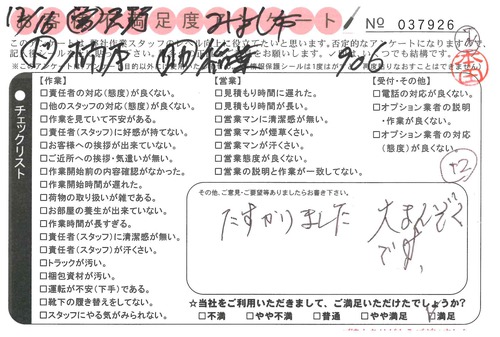 足度
ト
№ 037926
【作業】
□責任者の対応(態度)が良くない。
□他のスタッフの対応(態度)が良くない。
□作業を見ていて不安がある。
□責任者(スタッフ)に好感が持てない。
□お客様への挨拶が出来ていない。
□ご近所への挨拶・気遣いが無い。
□作業開始前の内容確認がなかった。
□作業開始時間が遅れた。
□荷物の取り扱いが雑である。
□お部屋の養生が出来ていない。
□作業時間が長すぎる。
□責任者(スタッフ)に清潔感が無い。
□責任者(スタッフ)が汗くさい。
□トラックが汚い。
□梱包資材が汚い。
□運転が不安(下手)である。
□靴下の履き替えをしてない。
□スタッフにやる気がみられない。
【営業】
□見積もり時間に遅れた。
□見積もり時間が長い。
□営業マンに清潔感が無い。
□営業マンが煙草くさい。
□営業マンが汗くさい。
□営業態度が良くない。
□営業の説明と作業が一致してない。
【受付・その他】
□電話の対応が良くない。
□オプション業者の説明
・作業が良くない。
□オプション業者の対応
(態度)が良くない。
+2
チェックリスト
その他、ご意見・ご要望等ありましたらお書き下さい。
たすかりました 大まんぞく
です。
☆当社をご利用いただきまして、ご満足いただけたでしょうか?
□不満 □やや不満 □普通 □やや満足 □満足